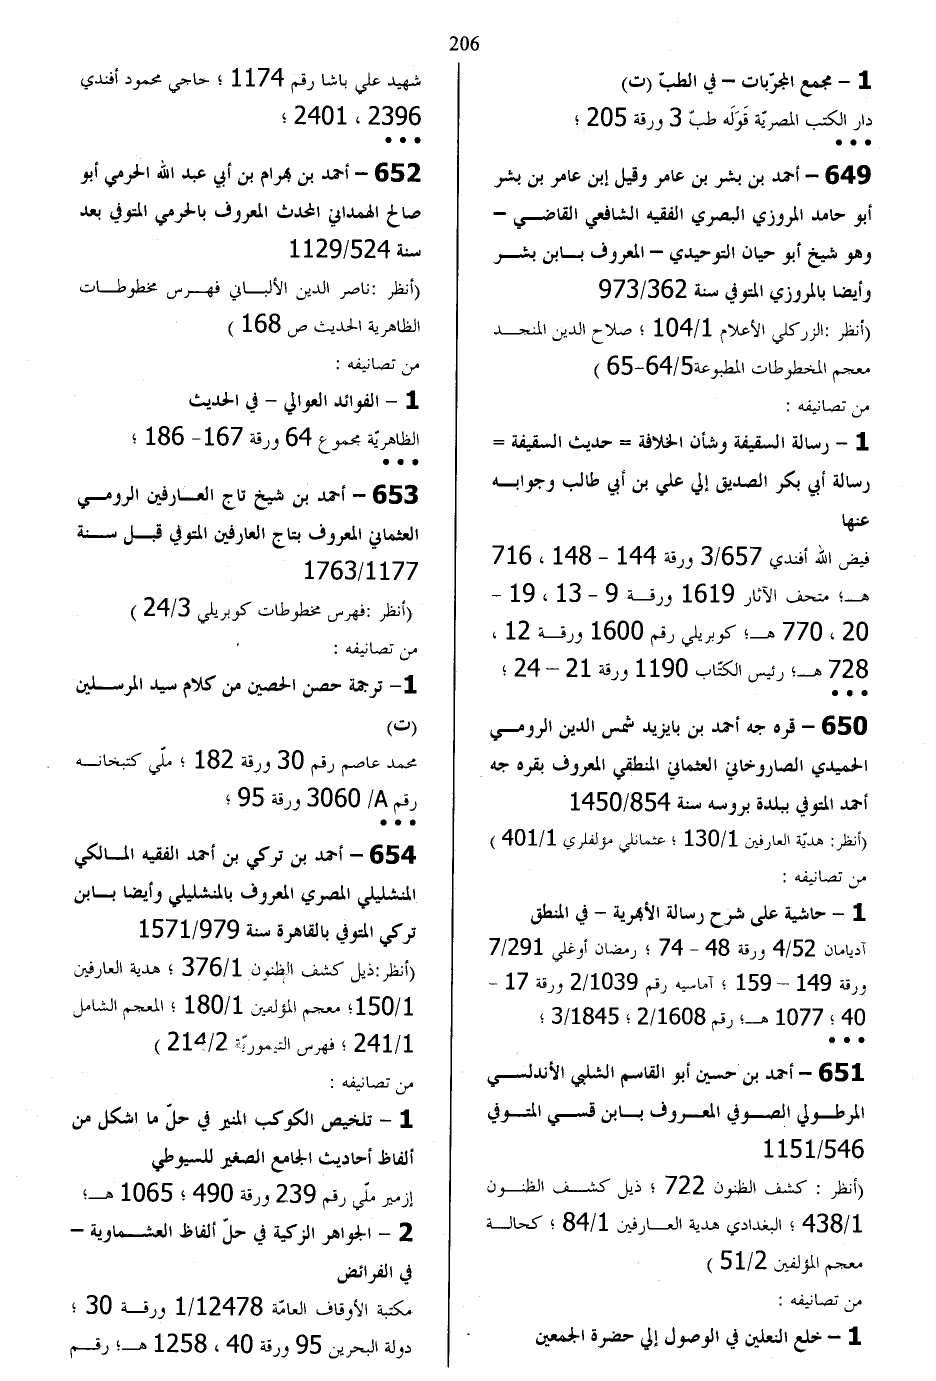 206
1 – مجمع المجرّبات – في الطبّ (ت)
دار الكتب المصريّة قَوَلَه طبّ 3 ورقة 205 ؛
•••
649 – أحمد بن بشر بن عامر وقيل إبن عامر بن بشر
أبو حامد المروزي البصري الفقيه الشافعي القاضي –
وهو شيخ أبو حيان التوحيدي – المعروف بابن بشر
وأيضا بالمروزي المتوفي سنة 973/362
(أنظر :الزركلي الأعلام 104/1 ؛ صلاح الدين المنجد
معجم المخطوطات المطبوعة64/5–65 )
من تصانيفه :
1 – رسالة السقيفة وشأن الخلافة = حديث السقيفة =
رسالة أبي بكر الصديق إلي علي بن أبي طالب وجوابه
عنها
فيض الله أفندي 3/657 ورقة 144 – 148 ، 716
هـ؛ متحف الآثار 1619 ورقة 9 – 13 ، 19 –
20 ، 770 هـ؛ كوبريلي رقم 1600 ورقة 12 ،
728 هـ؛ رئيس الكتّاب 1190 ورقة 21 – 24 ؛
•••
650 – قره جه أحمد بن بايزيد شمس الدين الرومي
الحميدي الصاروخاني العثماني المنطقي المعروف بقره جه
أحمد المتوفي ببلدة بروسه سنة 1450/854
(أنظر: هديّة العارفين 130/1 ؛ عثمانلي مؤلفلري 401/1 )
من تصانيفه :
1 – حاشية على شرح رسالة الأبهرية – في المنطق
آديامان 4/52 ورقة 48 – 74 ؛ رمضان أوغلي 7/291
ورقة 149 – 159 ؛ آماسيه رقم 2/1039 ورقة 17 –
40 ؛ 1077 هـ؛ رقم 2/1608 ؛ 3/1845 ؛
•••
651 – أحمد بن حسين أبو القاسم الشلبي الأندلسي
المرطولي الصوفي المعروف بابن قسي المتوفي
1151/546
(أنظر : كشف الظنون 722 ؛ ذيل كشف الظنون
438/1 ؛ البغدادي هدية العارفين 84/1 ؛ كحالة
معجم المؤلفين 51/2 )
من تصانيفه :
1 – خلع النعلين في الوصول إلي حضرة الجمعين
شهيد علي باشا رقم 1174 ؛ حاجي محمود أفندي
2396 ، 2401 ؛
•••
652 – أحمد بن بهرام بن أبي عبد الله الحرمي أبو
صالح الهمداني المحدث المعروف بالحرمي المتوفي بعد
سنة 1129/524
(أنظر :ناصر الدين الألباني فهرس مخطوطات
الظاهرية الحديث ص 168 )
من تصانيفه :
1 – الفوائد العوالي – في الحديث
الظاهريّة مجموع 64 ورقة 167– 186 ؛
•••
653 – أحمد بن شيخ تاج العارفين الرومي
العثماني المعروف بتاج العارفين المتوفي قبل سنة
1763/1177
(أنظر :فهرس مخطوطات كوبريلي 24/3 )
من تصانيفه :
1– ترجمة حصن الحصين من كلام سيد المرسلين
(ت)
محمد عاصم رقم 30 ورقة 182 ؛ ملّي كتبخانه
رقم A/ 3060 ورقة 95 ؛
•••
654 – أحمد بن تركي بن أحمد الفقيه المالكي
المنشليلي المصري المعروف بالمنشليلي وأيضا بابن
تركي المتوفي بالقاهرة سنة 1571/979
(أنظر:ذيل كشف الظنون 376/1 ؛ هدية العارفين
150/1؛ معجم المؤلفين 180/1 ؛ المعجم الشامل
241/1 ؛ فهرس التيموريّة 214/2 )
من تصانيفه :
1 – تلخيص الكوكب المنير في حلّ ما اشكل من
ألفاظ أحاديث الجامع الصغير للسيوطي
إزمير ملّي رقم 239 ورقة 490 ؛ 1065 هـ؛
2 – الجواهر الزكية في حلّ ألفاظ العشماوية –
في الفرائض
مكتبة الأوقاف العامّة 1/12478 ورقة 30 ؛
دولة البحرين 95 ورقة 40 ، 1258 هـ؛ رقم